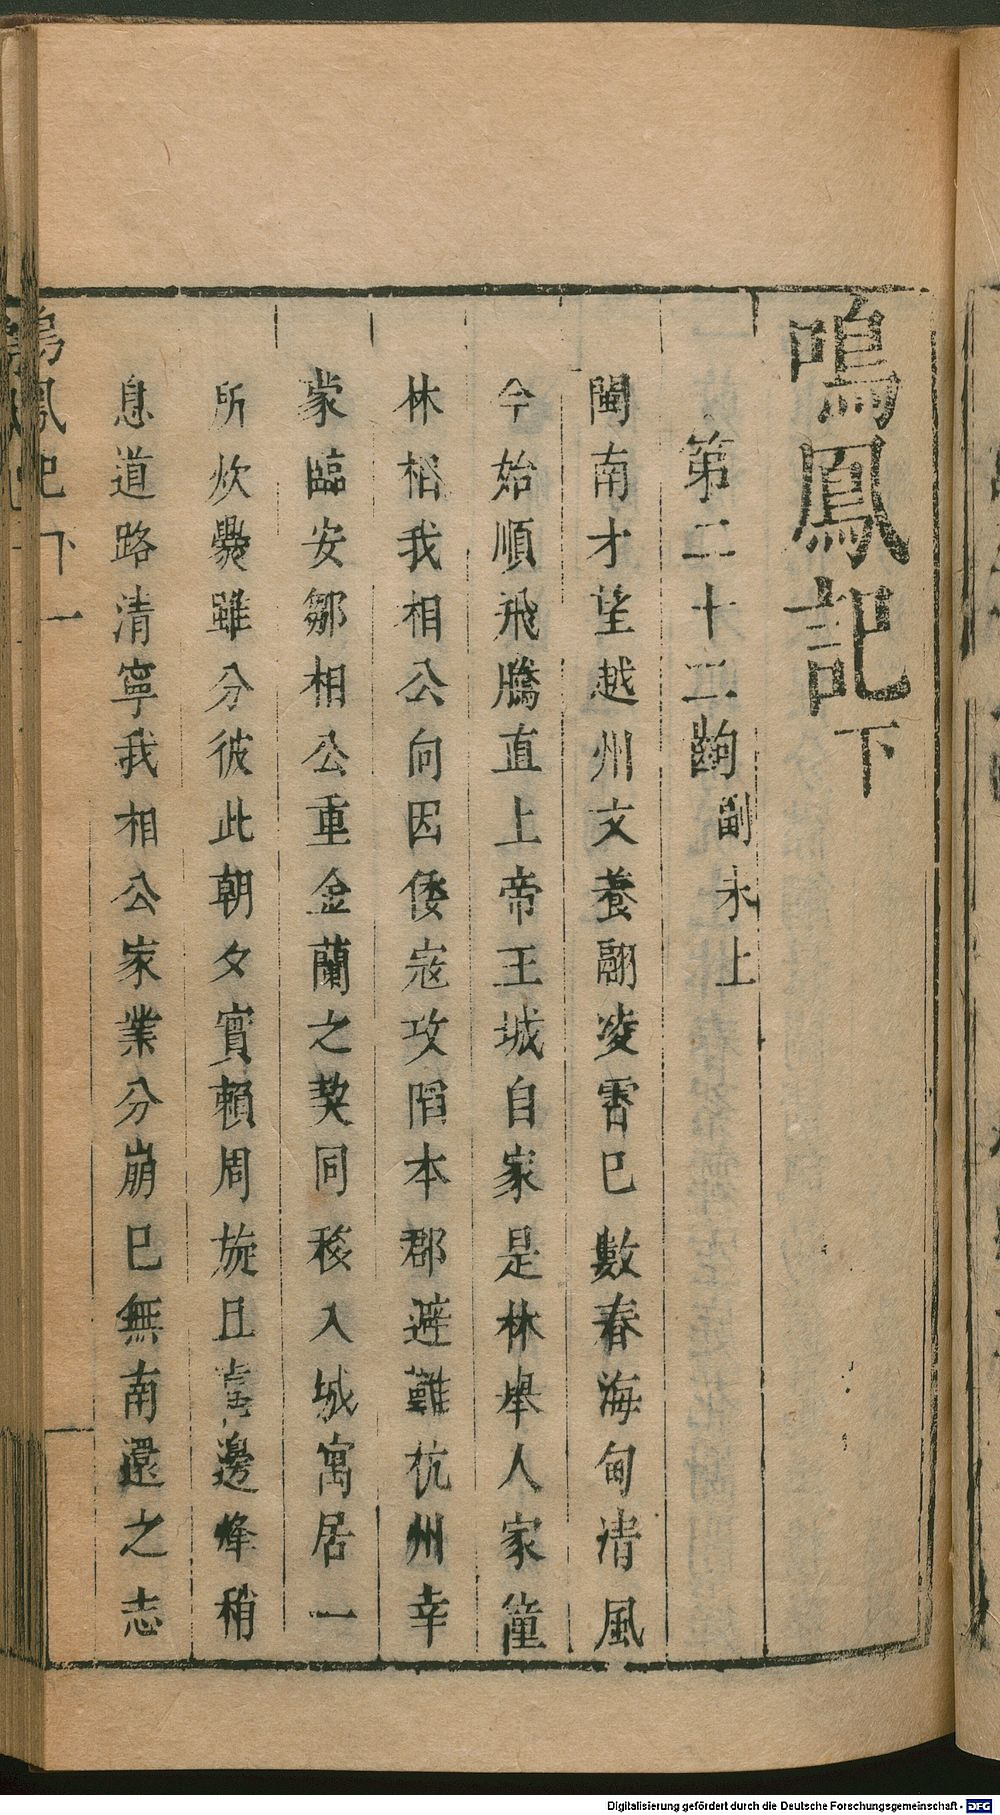 鳴鳳記下
第二十二齣
副末上
閩南才望越州文養翮凌霄巳數春海甸清風
今始順飛騰直上帝王城自家是林舉人家僮
林相我相公向因倭寇攻陷本郡避難杭州幸
蒙臨安鄒相公重金蘭之契同移入城寓居一
所炊爨雖分彼此朝夕實賴周旋且喜邊烽稍
息道路清寧我相公家業分崩巳無南還之志
鳳記 下 一
Digitalisierung gefördert durch die Deutsche Forschungsgemeinschaft - DFG